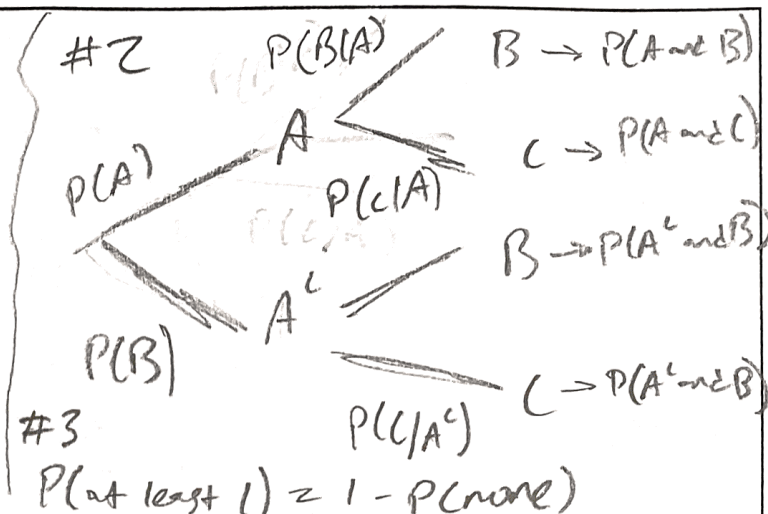 #2
P(B|A)
B → P(A and B)
A
P(A)
C → P(A and C)
P(C|A)
B → P(Aᶜ and B)
Aᶜ
P(B)
C → P(Aᶜ and B)
P(C|Aᶜ)
#3
P(at least 1) = 1 - P(none)